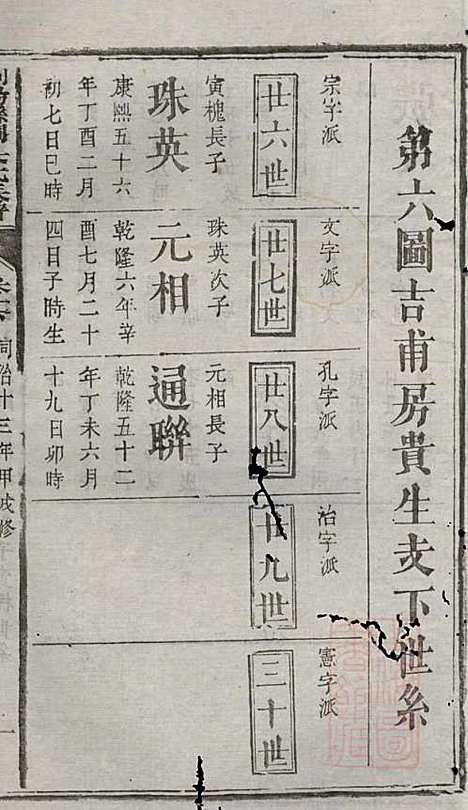 第六圖吉甫房貴生支下世系
宗字派
廿六世
寅槐長子
珠英
康熙五十六
年丁酉二月
初七日巳時
文字派
廿七世
珠英次子
元相
乾隆六年辛
酉七月二十
四日子時生
孔字派
廿八世
元相長子
通聯
乾隆五十二
年丁未六月
十九日卯時
治字派
廿九世
憲字派
三十世
同治十三年甲戌修